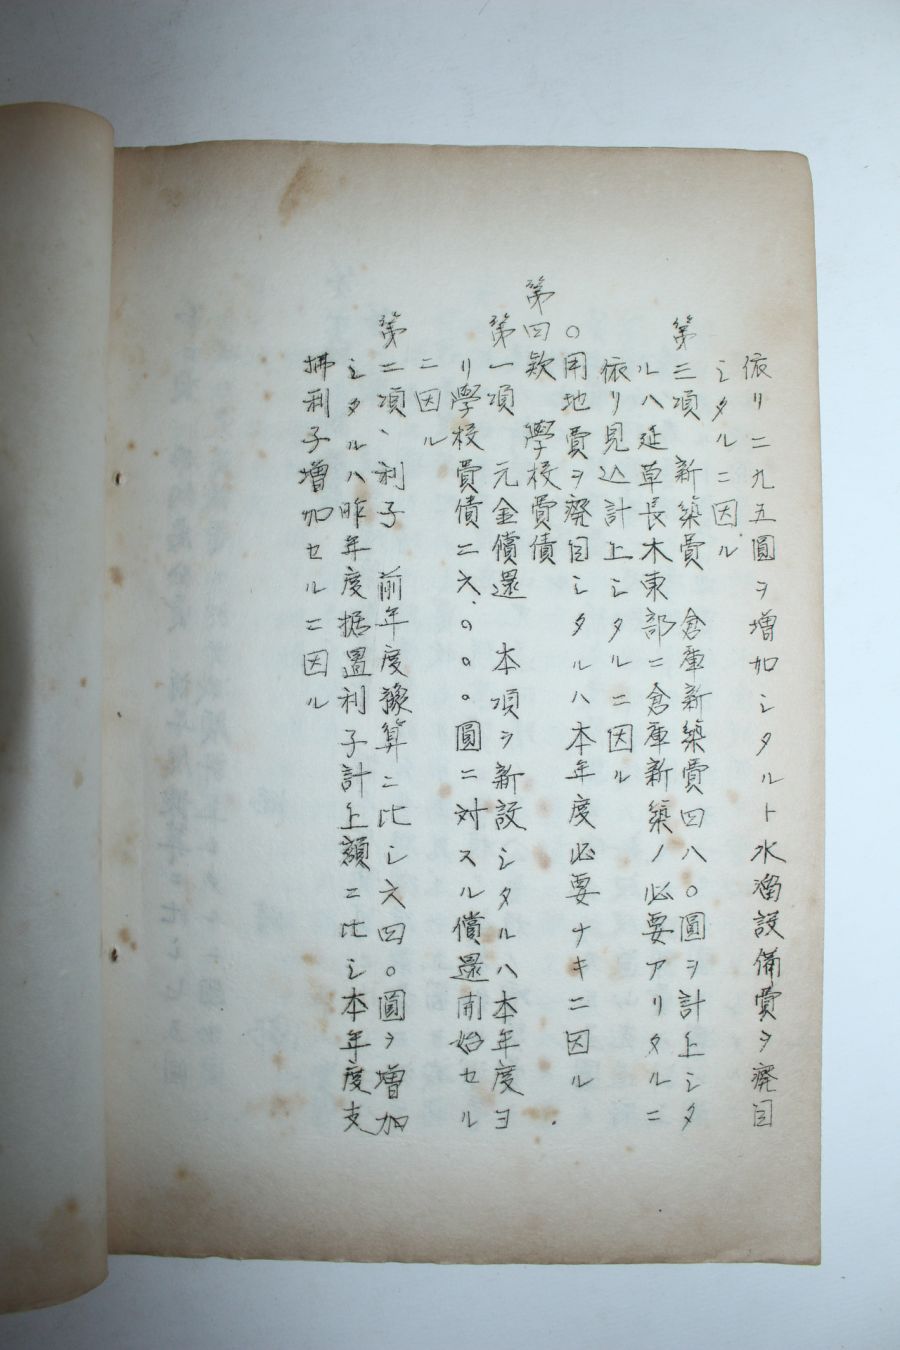 依リ二九五圓ヲ増加シタルト水溜設備費ヲ廃目
シタルニ因ル
第三項　新築費　倉庫新築費四八〇圓ヲ計上シタ
ルハ延草長木東部ニ倉庫新築ノ必要アリタルニ
依リ見込計上シタルニ因ル
〇用地費ヲ廃目シタルハ本年度必要ナキニ因ル
第四款　學校費債
第一項　元金償還　本項ヲ新設シタルハ本年度ヨ
リ學校費債二六、〇〇〇圓ニ対スル償還開始セル
ニ因ル
第二項、利子　前年度豫算ニ比シ六四〇圓ヲ増加
シタルハ昨年度据置利子計上額ニ比シ本年度支
拂利子増加セルニ因ル